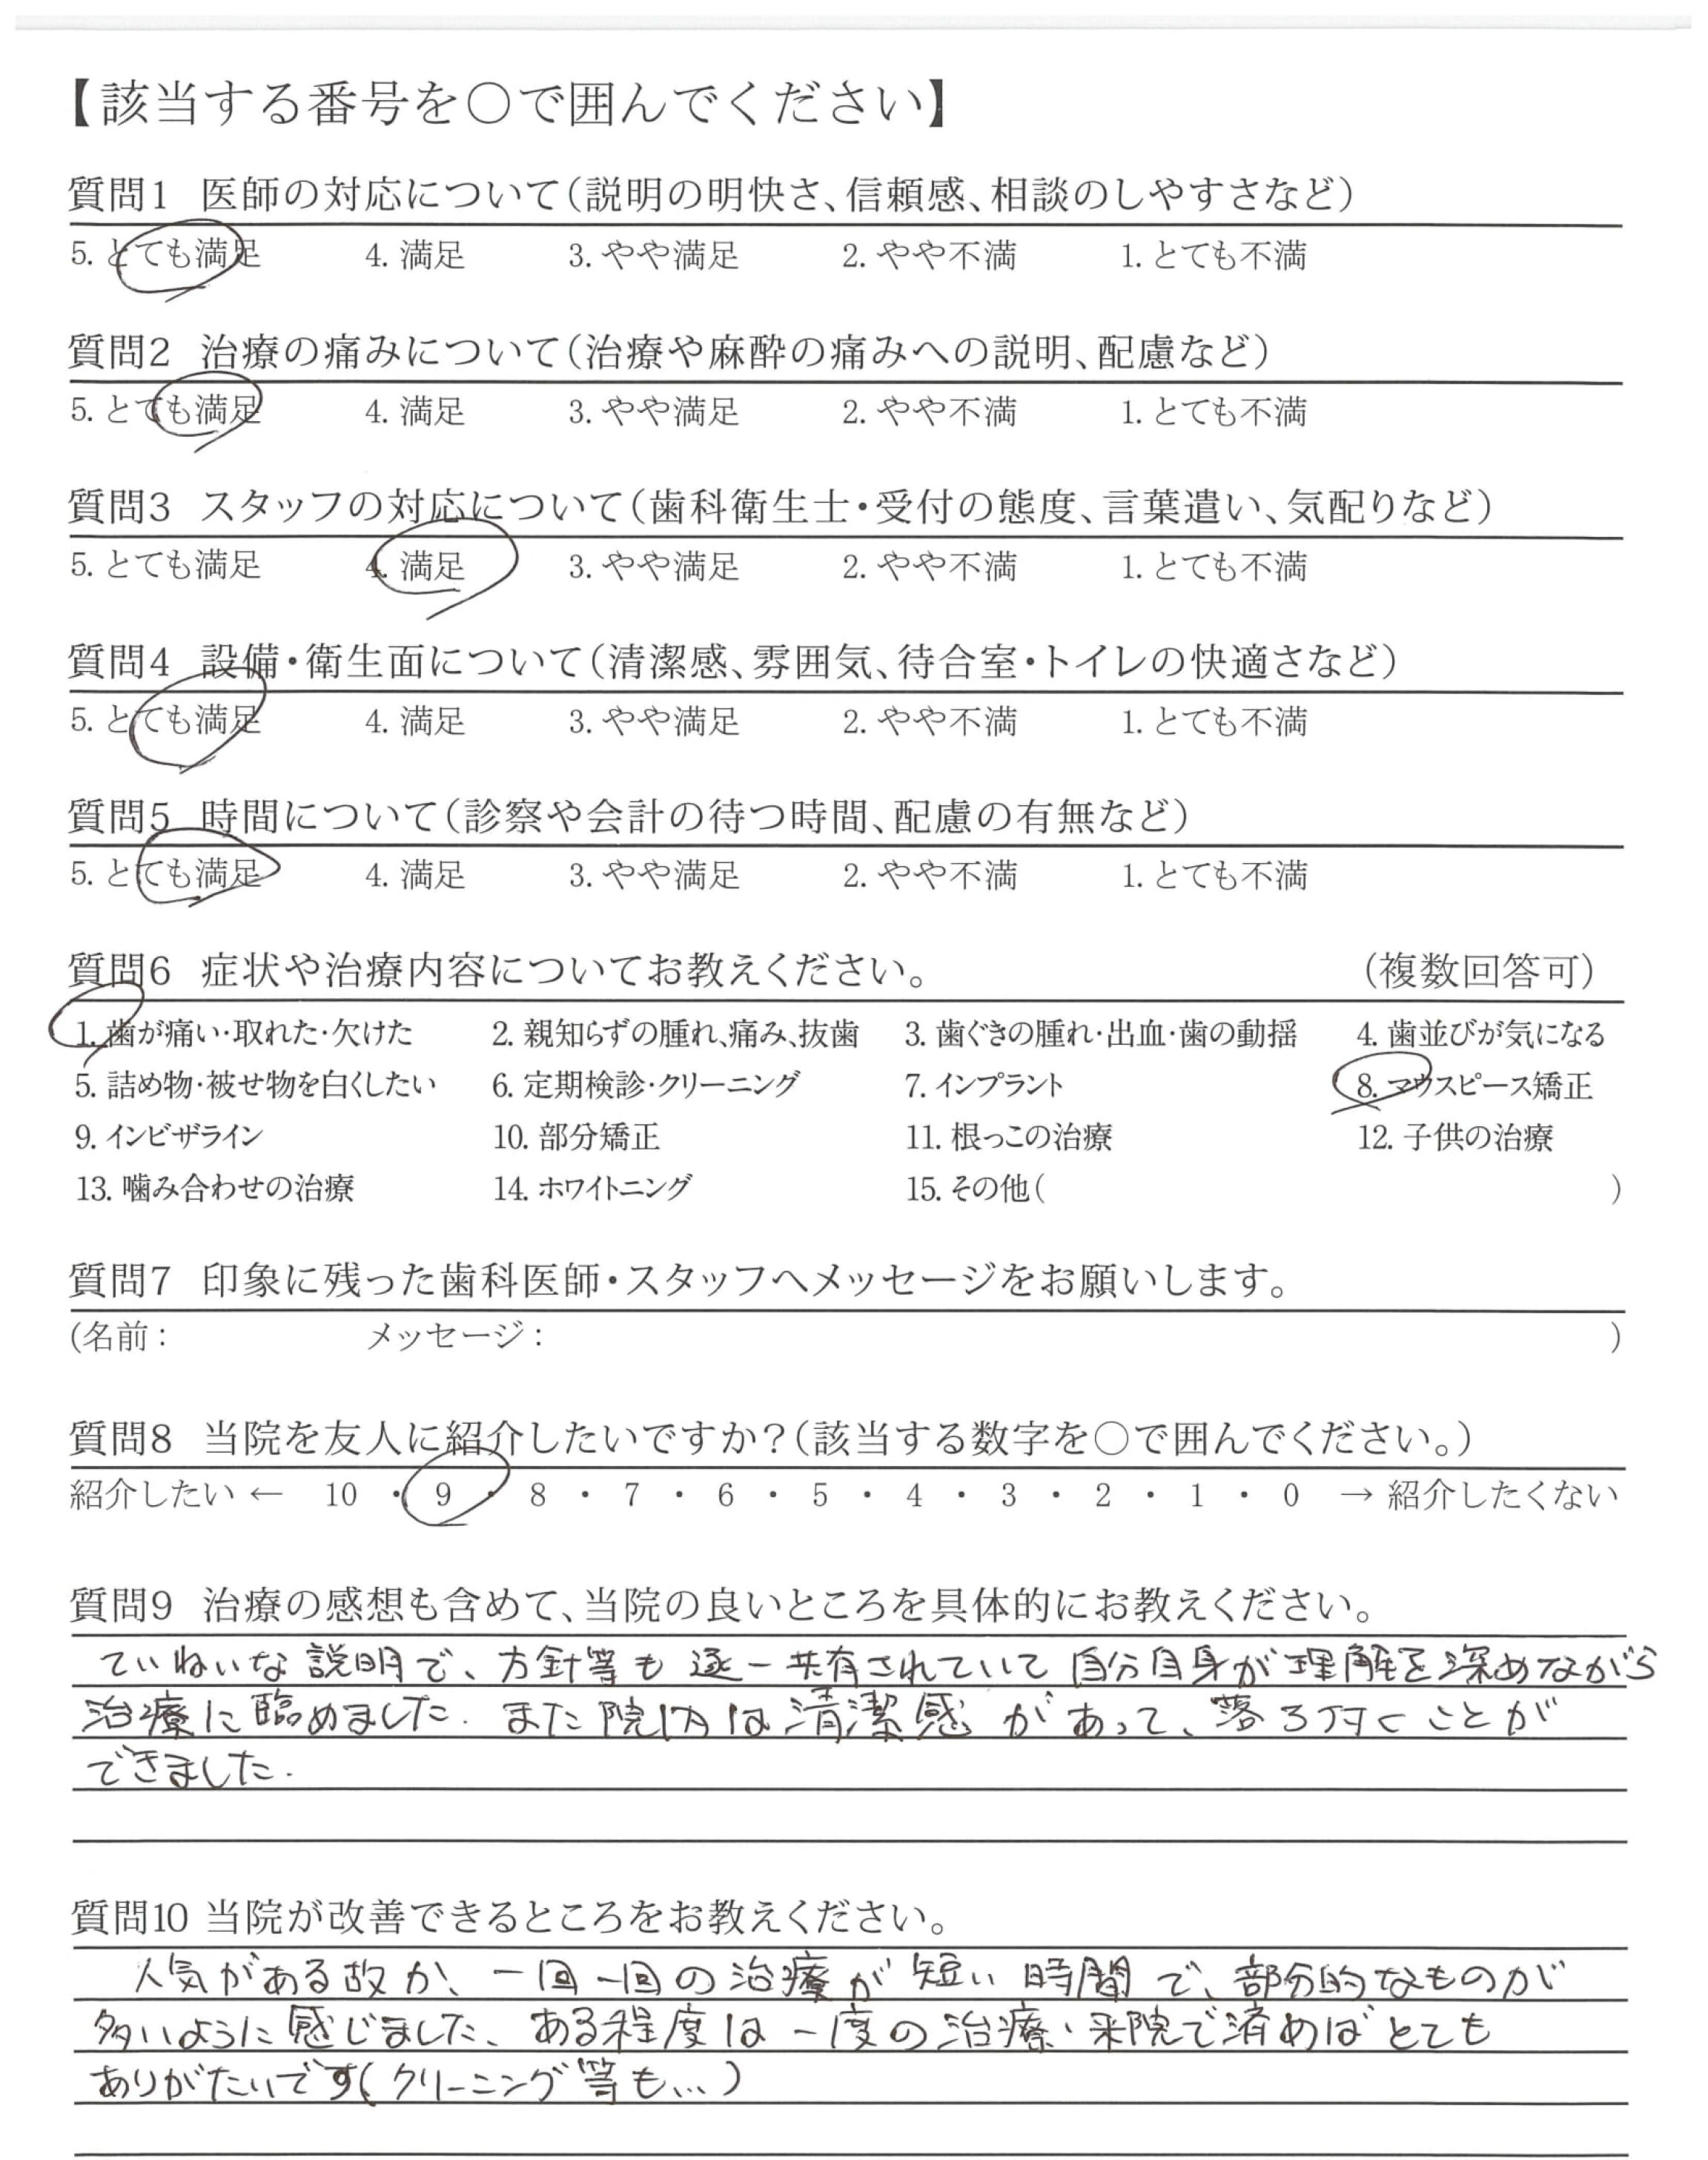 【該当する番号を○で囲んでください】
質問1 医師の対応について(説明の明快さ、信頼感、相談のしやすさなど)
5. とても満足 4. 満足 3. やや満足 2. やや不満 1. とても不満
質問2 治療の痛みについて(治療や麻酔の痛みへの説明、配慮など)
5. とても満足 4. 満足 3. やや満足 2. やや不満 1. とても不満
質問3 スタッフの対応について(歯科衛生士・受付の態度、言葉遣い、気配りなど)
5. とても満足 4. 満足 3. やや満足 2. やや不満 1. とても不満
質問4 設備・衛生面について(清潔感、雰囲気、待合室・トイレの快適さなど)
5. とても満足 4. 満足 3. やや満足 2. やや不満 1. とても不満
質問5 時間について(診察や会計の待つ時間、配慮の有無など)
5. とても満足 4. 満足 3. やや満足 2. やや不満 1. とても不満
質問6 症状や治療内容についてお教えください。 (複数回答可)
1. 歯が痛い・取れた・欠けた 2. 親知らずの腫れ、痛み、抜歯 3. 歯ぐきの腫れ・出血・歯の動揺 4. 歯並びが気になる
5. 詰め物・被せ物を白くしたい 6. 定期検診・クリーニング 7. インプラント 8. マウスピース矯正
9. インビザライン 10. 部分矯正 11. 根っこの治療 12. 子供の治療
13. 噛み合わせの治療 14. ホワイトニング 15. その他( )
質問7 印象に残った歯科医師・スタッフへメッセージをお願いします。
(名前: メッセージ: )
質問8 当院を友人に紹介したいですか?(該当する数字を○で囲んでください。)
紹介したい ← 10 ・ 9 ・ 8 ・ 7 ・ 6 ・ 5 ・ 4 ・ 3 ・ 2 ・ 1 ・ 0 → 紹介したくない
質問9 治療の感想も含めて、当院の良いところを具体的にお教えください。
ていねいな説明で、方針等も逐一共有されていて自分自身が理解を深めながら
治療に臨めました。また院内は清潔感があって、落ち付くことが
できました。
質問10 当院が改善できるところをお教えください。
人気がある故か、一回一回の治療が短い時間で、部分的なものが
多いように感じました、ある程度は一度の治療・来院で済めばとても
ありがたいです(クリーニング等も...)